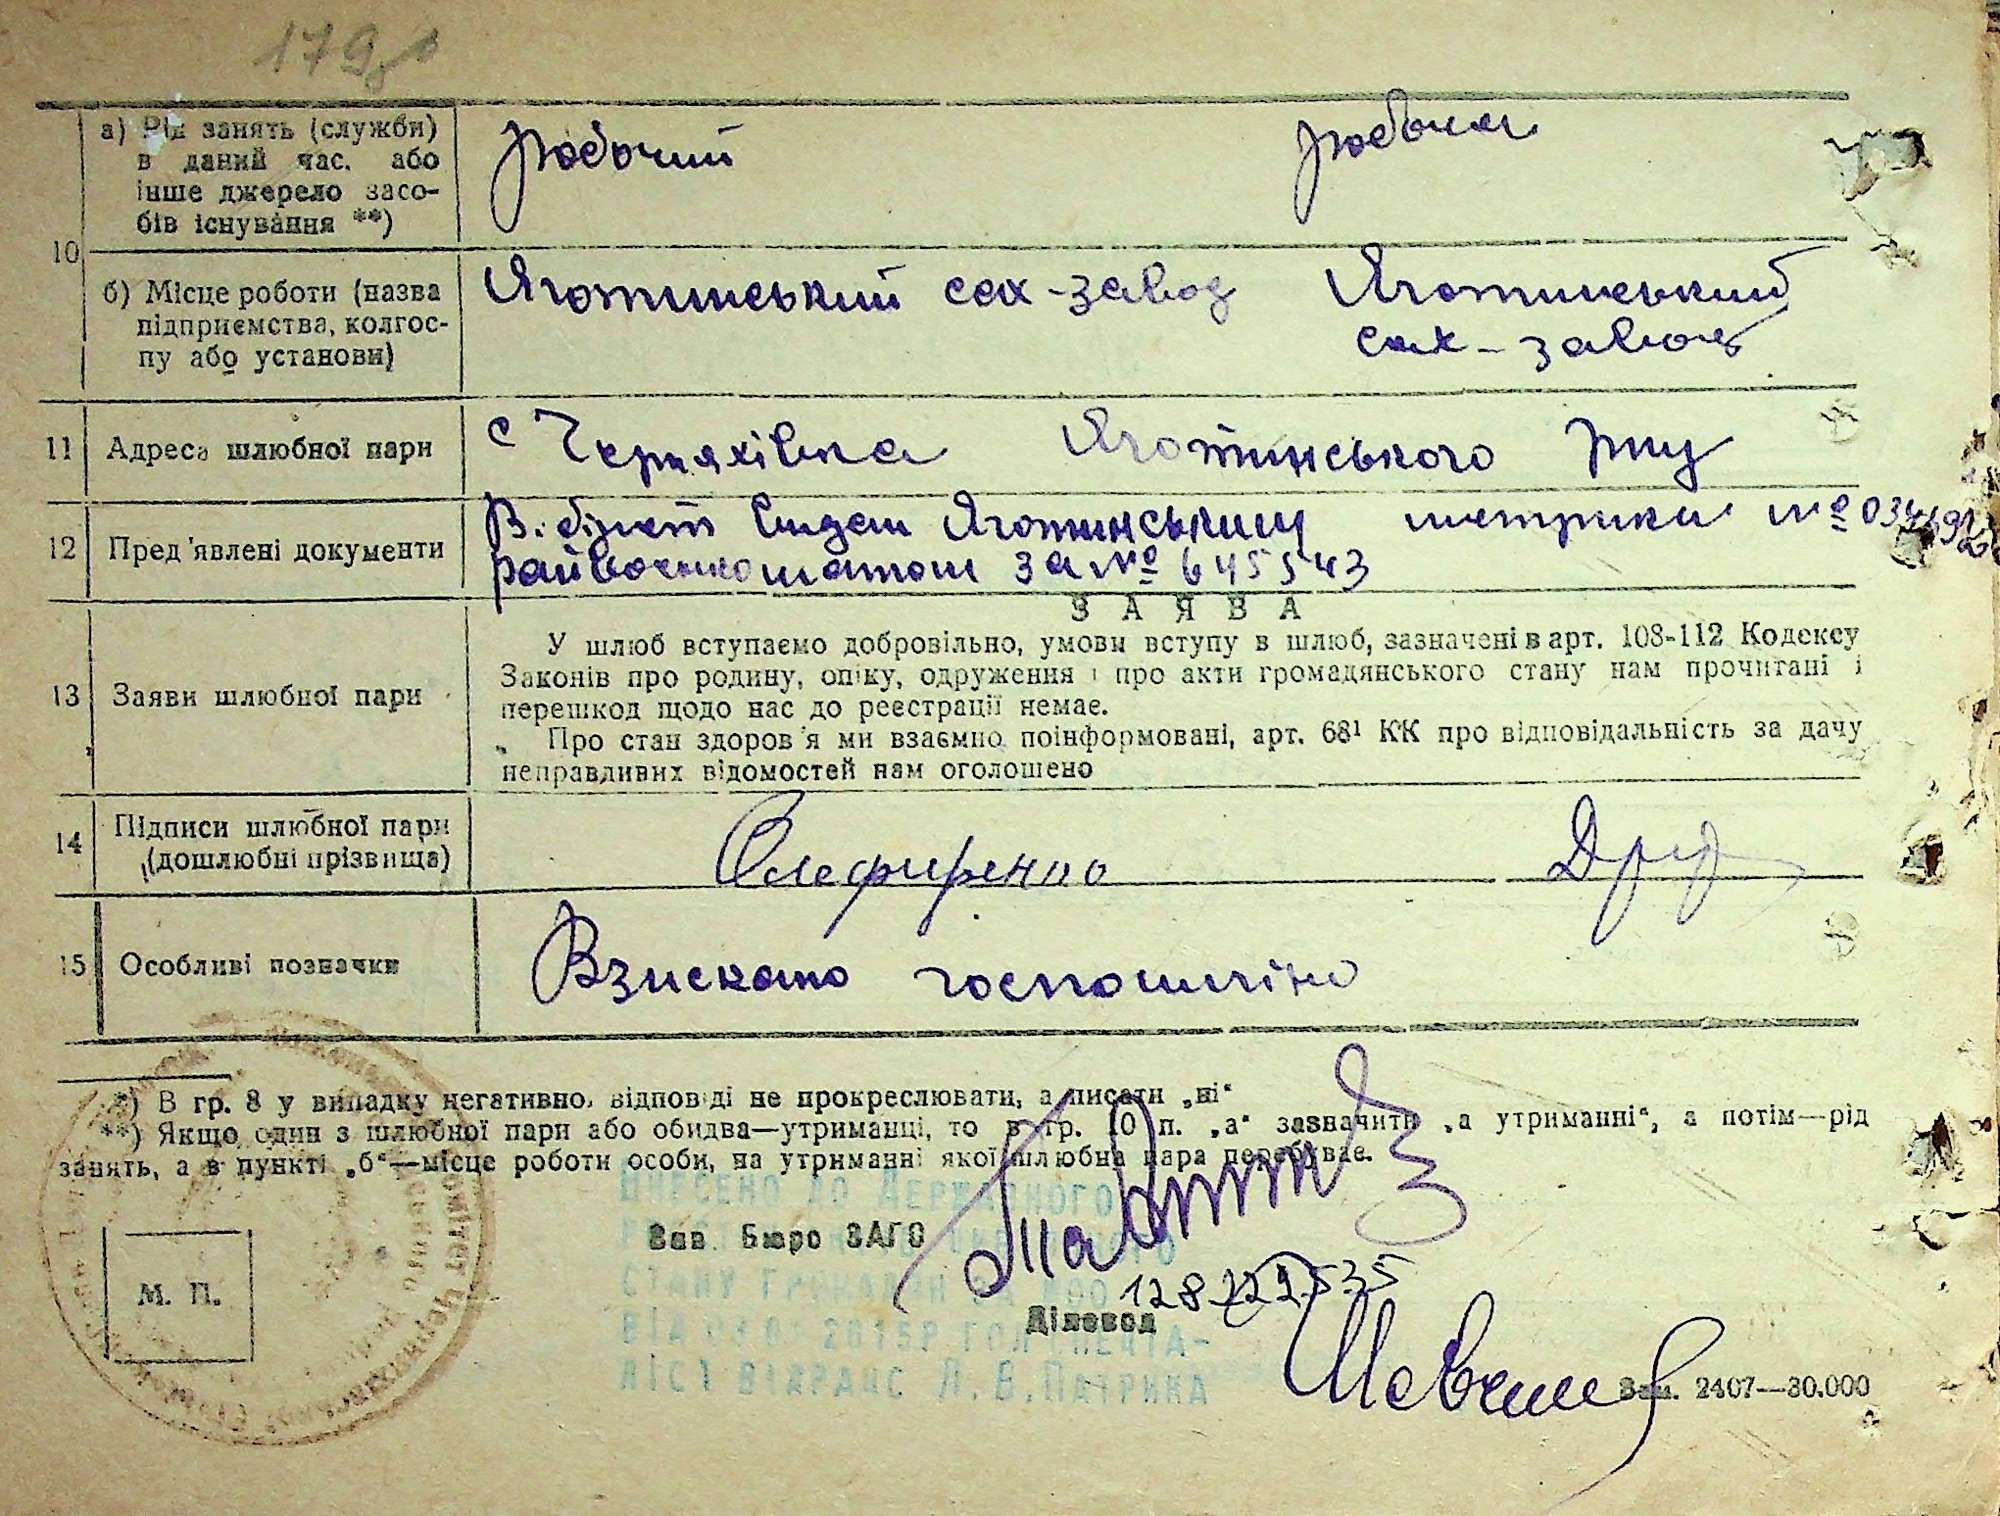 179
10
а) Рід занять (служби)
в даний час, або
інше джерело засо-
бів існування **)
робочий
робоча
б) Місце роботи (назва
підприємства, колгос-
пу або установи)
Яготинський сах-завод
Яготинський
сах-завод
11 Адреса шлюбної пари
с Черняхівка Яготинського р-ну
12 Пред'явлені документи
В. білет видан Яготинським
метрика №
райвоенкоматом за № 645543
13 Заяви шлюбної пари
ЗАЯВА
У шлюб вступаємо добровільно, умови вступу в шлюб, зазначені в арт. 108-112 Кодексу
Законів про родину, опіку, одруження і про акти громадянського стану нам прочитані і
перешкод щодо нас до реєстрації немає.
Про стан здоров'я ми взаємно поінформовані, арт. 68¹ КК про відповідальність за дачу
неправдивих відомостей нам оголошено
14 Підписи шлюбної пари
(дошлюбні прізвища)
Олефиренко
15 Особливі позначки
Взискано госпошліно
*) В гр. 8 у випадку негативно, відповіді не прокреслювати, а писати „ні“
**) Якщо один з шлюбної пари або обидва—утриманці, то в гр. 10 п. „а“ зазначити „а утриманні“, а потім—рід
занять, а в пункті „б“—місце роботи особи, на утриманні якої шлюбна пара перебуває.
Внесено до Державного
Зав. Бюро ЗАГС
стану громадян за №00
Діловод
М. П.
Л. В. Патрика
Зам. 2407—30.000